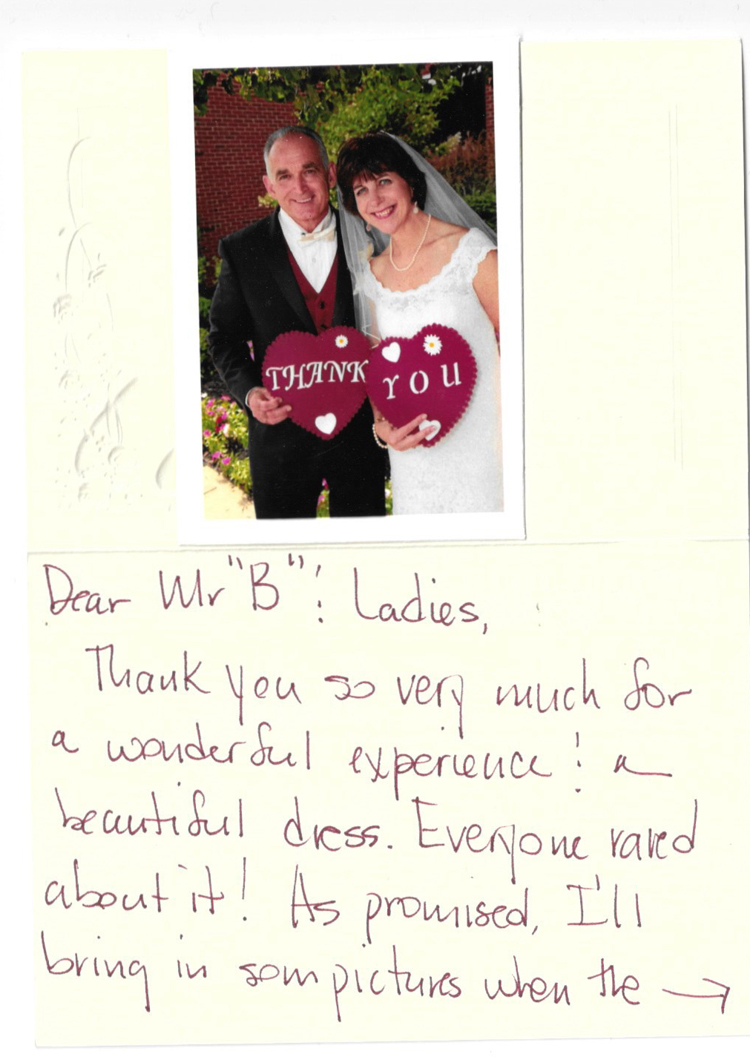 THANK YOU
Dear Mr "B" & Ladies,
Thank you so very much for
a wonderful experience & a
beautiful dress. Everyone raved
about it! As promised, I'll
bring in som pictures when the →